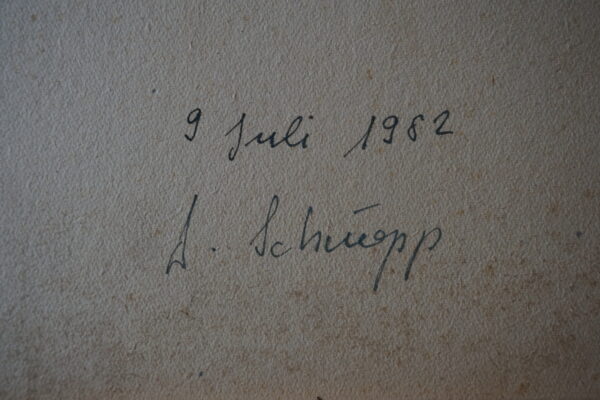 9 Juli 1982
S. Schnepp